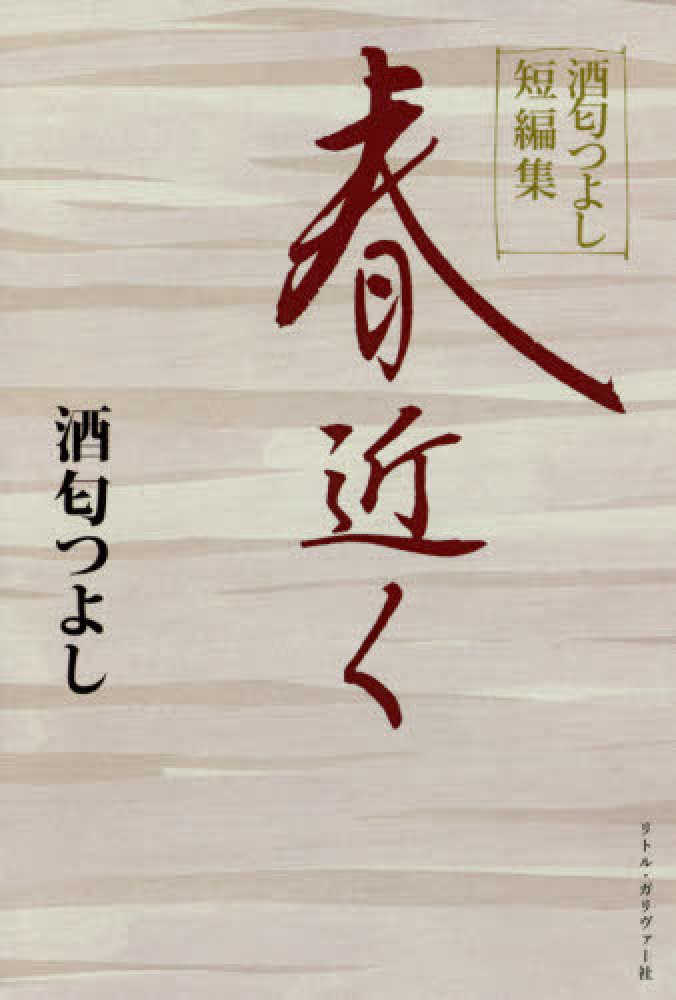 酒匂つよし
短編集
春近く
酒匂つよし
リトル・ガリヴァー社